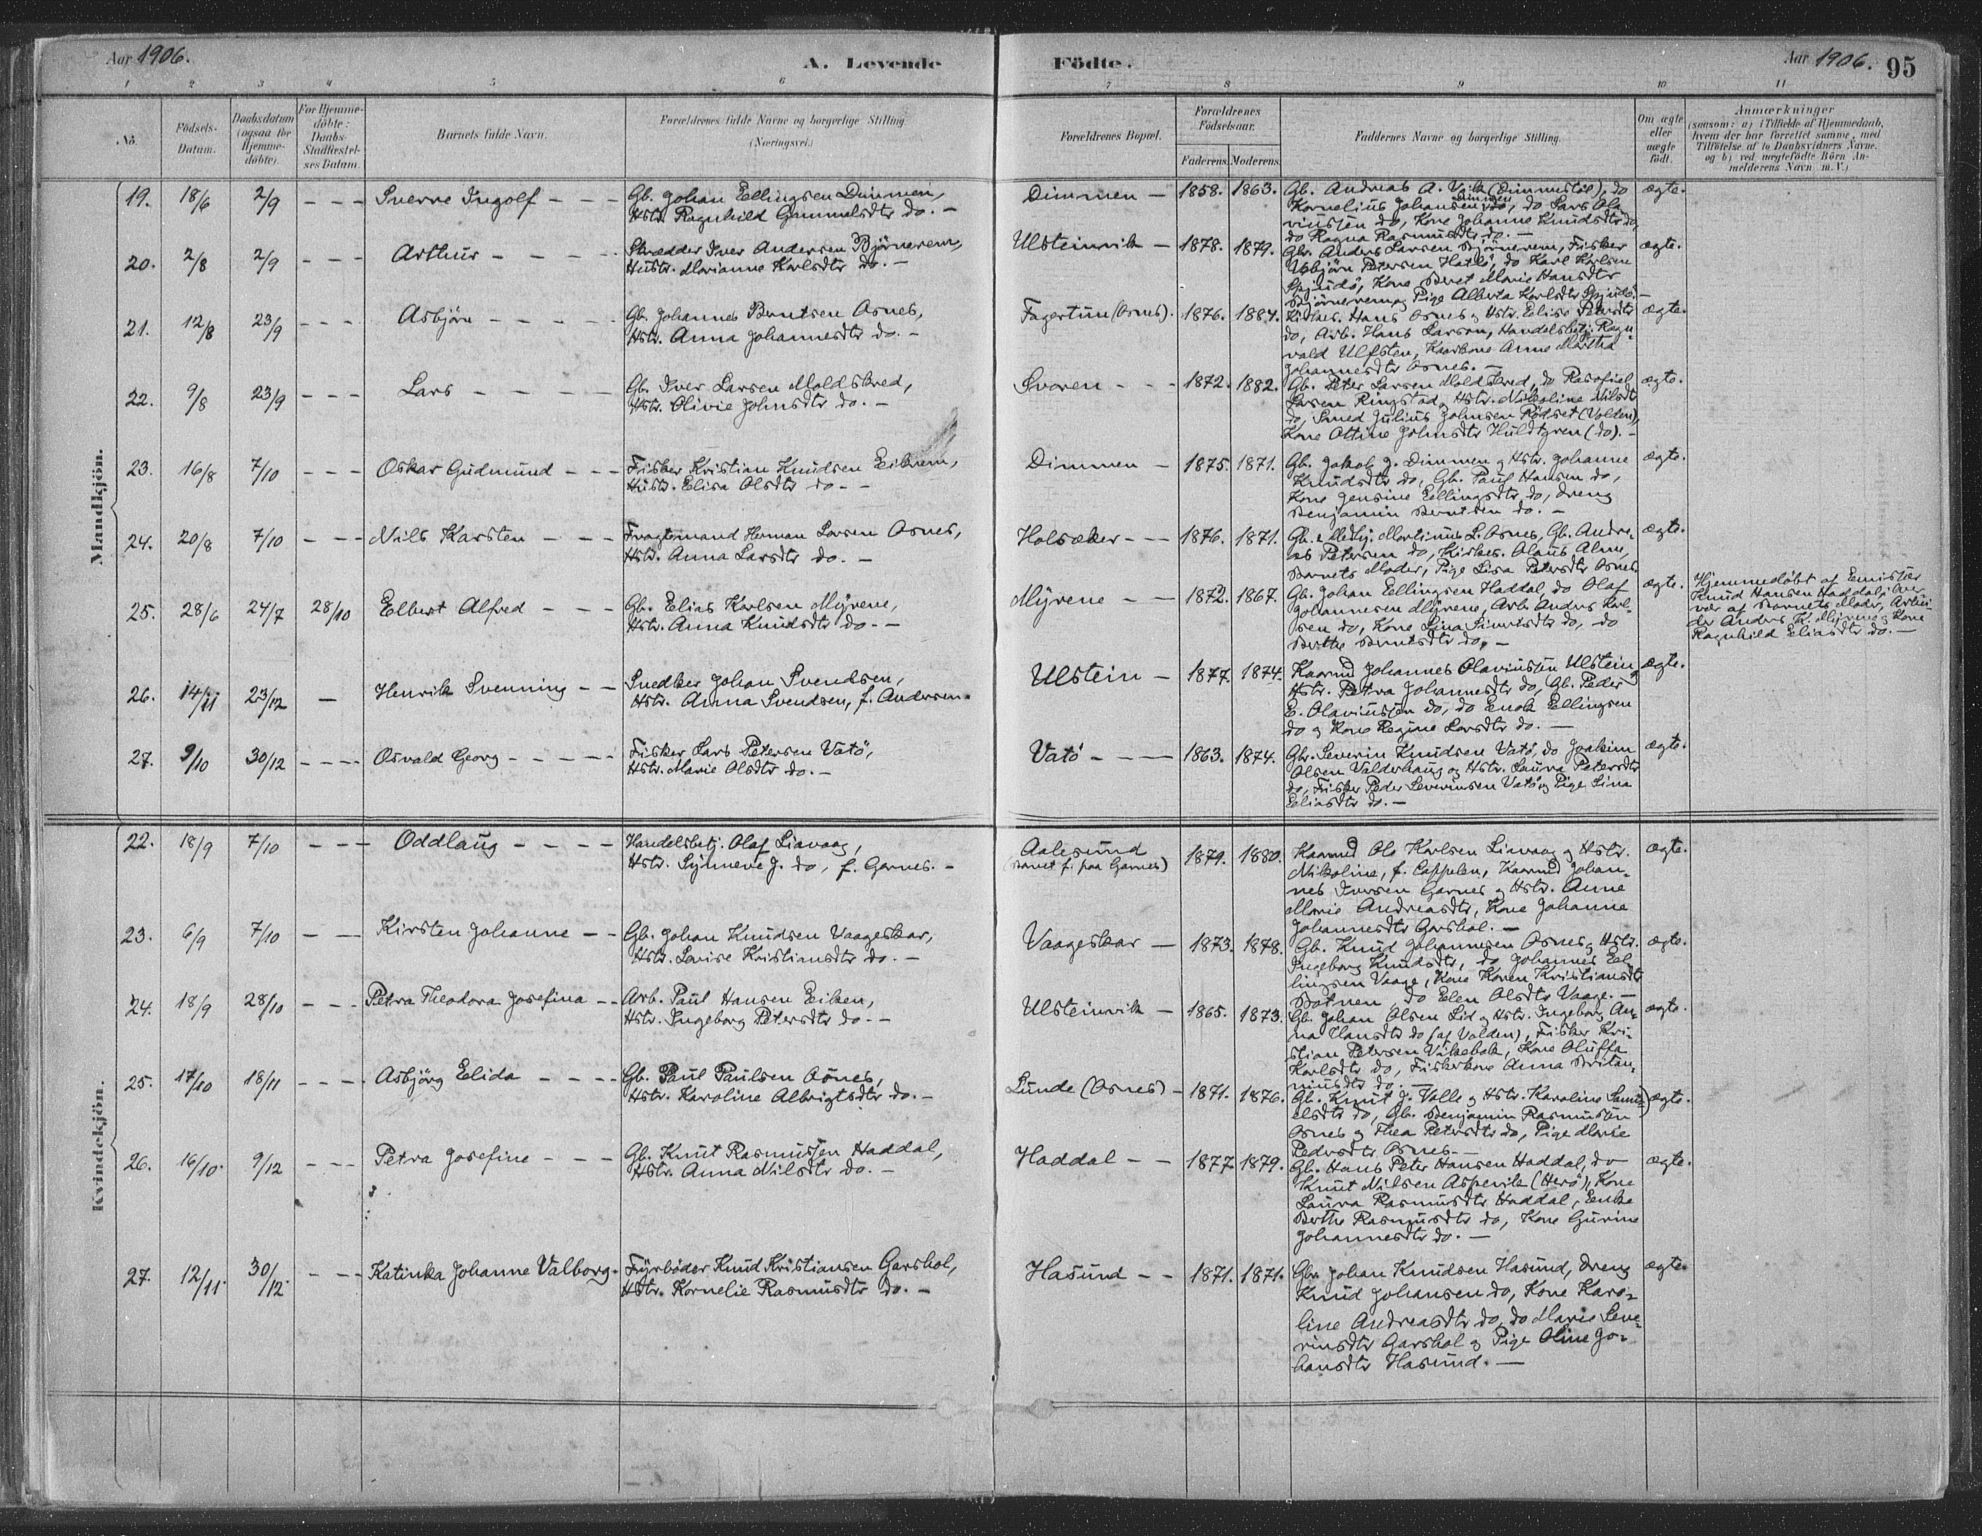 Aar 1906.
A. Levende
Födte.
Aar 1906. 95
1 2 3 4 5 6 7 8 9 10 11
No.
Födsels-
Datum.
Daabsdatum
(ogsaa for
Hjemme-
døbte).
For Hjemme-
døbte:
Daabs-
Stadfæstel-
ses Datum.
Barnets fulde Navn.
Forældrenes fulde Navne og borgerlige Stilling
(Næringsvei.)
Forældrenes Bopæl.
Forældrenes
Födselsaar.
Faderens. Moderens.
Faddernes Navne og borgerlige Stilling.
Om ægte
eller
uægte
født.
Anmærkninger
(saasom: a) i Tilfælde af Hjemmedaab,
hvem der har forrettet samme, med
Tilføielse af to Daabsvidners Navne,
og b) ved uægtefødte Börn An-
melderens Navn m. V.)
Mandkjön.
19. 18/6 2/9 - - - Sverre Ingolf - - -
Gb. Johan Ellingsen Dimmen,
Hstr. Ragnhild Gammelsdtr do. -
Dimmen - 1858. 1863.
Gb. Andreas A. Vik (Dimmestøl), do
Kornelius Johansen Dimmen, do Lars Ola-
viussen do, Kone Johanne Knudsdtr do,
do Ragna Rasmusdtr do. -
ægte.
20. 2/8 2/9 - - - Arthur - - - -
Skrædder Iver Andersen Bjørnerem,
Hustr. Marianne Karlsdtr do. -
Ulsteinvik - 1878. 1879.
Gb. Anders Larsen Bjørnerem, Fisker
Asbjørn Petersen Hatlø, do Karl Karlsen
Spjudø, Kone Beret Marie Hansdtr
Bjørnerem og Pige Alberta Karlsdtr Spjudø. -
ægte.
21. 12/8 23/9 - - - Asbjørn - - - -
Gb. Johannes Berntsen Osnes,
Hstr. Anna Johannesdtr do -
Fagertun (Osnes). 1876. 1884.
Kirkes. Hans Osnes og Hstr. Elise Petersdtr
do, Arb. Hans Larsen, Handelsbetj. Ragn-
vald Ulfsten, Kaarkone Anne Martha
Johannesdtr Osnes. -
ægte.
22. 9/8 23/9 Lars - - - -
Gb. Iver Larsen Moldskred,
Hstr. Olivie Johnsdtr do. -
Svoren - - - 1872. 1882.
Gb. Peter Larsen Moldskred, do Rasofiel
Larsen Ringstad, Hstr. Nikoline Nilsdtr
do, Smed Julius Johnsen Rødset (Volden),
Kone Ottine Johnsdtr Huldtgren (do). -
ægte.
23. 16/8 7/10 - - - Oskar Gudmund - - -
Fisker Kristian Knudsen Eikrem,
Hustr. Elisa Olsdtr do - -
Dimmen - 1875. 1871.
Gb. Jakob J. Dimmen og Hstr. Johanne
Knudsdtr do, Gb. Paul Hansen do,
Kone Jensine Ellingsdtr do, Dreng
Benjamin Berntsen do. -
ægte.
24. 20/8 7/10 - - - Nils Karsten - - -
Fragtemand Herman Larsen Osnes,
Hstr. Anna Larsdtr do. -
Holsæker - - - 1876. 1871.
Gb. & Medhj. Martinus L. Osnes, Gb. Andre-
as Petersen do, Kirkes. Olaus Alme,
Barnets Moder, Pige Lisa Petersdtr Osnes.
ægte.
25. 28/6 24/7 28/10 Elbert Alfred - - -
Gb. Elias Karlsen Myrene,
Hstr. Anna Knudsdtr do - -
Myrene - - 1872. 1867.
Gb. Johan Ellingsen Haddal, do Olaf
Johannesen Myrene, Arb. Anders Karl-
sen do, Kone Lina Sivertsdtr do, do
Berthe Berntsdtr do. -
ægte.
Hjemmedøbt af Emissær
Knud Hansen Haddal, Over-
vær af Barnets Moder, Arbei-
der Anders K. Myrene og Kone
Ragnhild Eliasdtr do. -
26. 14/11 23/12 - Henrik Svenning - -
Snedker Johan Svendsen,
Hstr. Anna Svendsen, f. Andersen.
Ulstein - 1877. 1874.
Kaarmd Johannes Olaviussen Ulstein og
Hstr. Petra Johannesdtr do, Gb. Peder
E. Olaviussen do, do Enok Ellingsen
do og Kone Regine Larsdtr do. -
ægte.
27. 9/10 30/12 - - - - Osvald Georg - - - -
Fisker Lars Petersen Vatø,
Hstr. Marie Olsdtr do. -
Vatø - - - 1863. 1874.
Gb. Severin Knudsen Vatø, do Joakim
Olsen Valderhaug og Hstr. Laura Petersdtr
do, Fisker Peder Severinsen Vatø og Pige Lina
Eliasdtr do. -
ægte.
Kvindekjön.
22. 18/9 7/10 - - - Oddlaug - - - -
Handelsbetj. Olaf Liavaag,
Hstr. Synneve J. do, f. Garnes. -
Aalesund
(Barnet f. paa Garnes) 1879. 1880.
Kaarmd Ole Karlsen Liavaag og Hstr.
Nikoline, f. Cappelen, Kaarmd Johan-
nes Iversen Garnes og Hstr. Anne
Marie Andreasdtr, Kone Johanne
Johannesdtr Garshol. -
ægte.
23. 6/9 7/10 - - Kirsten Johanne - -
Gb. Johan Knudsen Vaageskar,
Hstr. Lovise Kristiansdtr do. -
Vaageskar - 1873. 1878.
Gb. Knud Johannesen Osnes og Hstr.
Ingeborg Knudsdtr, do Johannes El-
lingsen Vaage, Kone Karen Kristiansdtr
Botnen, do Elen Olsdtr Vaage. -
ægte.
24. 18/9 28/10 - - - Petra Theodora Josefina - -
Arb. Paul Hansen Eiken,
Hstr. Ingeborg Petersdtr do. -
Ulsteinvik - 1865. 1873.
Gb. Johan Olsen Lid og Hstr. Ingeborg An-
na Hansdtr do (af Volden), Fisker Kri-
stian Petersen Vikebak, Kone Oluffa
Karlsdtr do, Fiskerkone Anna Britan-
niusdtr do. -
ægte.
25. 17/10 18/11 - - - - Asbjørg Elida - - - -
Gb. Paul Paulsen Osnes,
Hstr. Karoline Albrigtsdtr do. -
Lunde (Osnes) - 1871. 1876.
Gb. Knut J. Valle og Hstr. Karoline Samu-
elsdtr do, Gb. Benjamin Rasmussen
Osnes og Thea Petersdtr do, Pige Marie
Pedersdtr Osnes. -
ægte.
26. 16/10. 9/12 - - - Petra Josefine - - -
Gb. Knut Rasmussen Haddal,
Hstr. Anna Nilsdtr do. -
Haddal - - 1877. 1879.
Gb. Hans Peter Hansen Haddal, do
Knut Nilsen Aspevik (Herø), Kone
Laura Rasmusdtr Haddal, Enke
Berthe Rasmusdtr do, Kone Gurine
Johannesdtr do. -
ægte.
27. 12/11. 30/12. - - - Katinka Johanne Valborg.
Fyrbøder Knud Kristiansen Garshol,
Hstr. Kornelie Rasmusdtr do. -
Hasund - - 1871. 1871.
Gb. Johan Knudsen Hasund, Dreng
Knud Johansen do, Kone Karo-
line Andreasdtr do, do Marie Seve-
rinsdtr Garshol og Pige Oline Jo-
hansdtr Hasund. -
ægte.